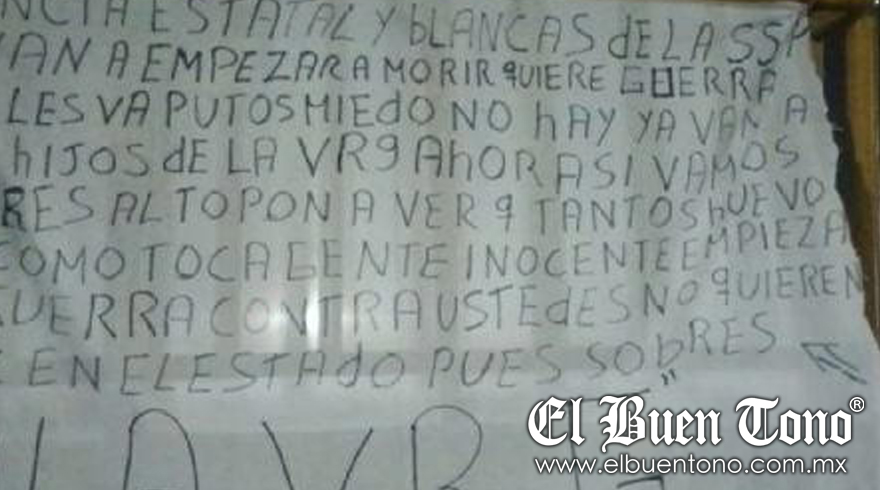 NCIA ESTATAL Y bLANCAS dE LA SSP
VAN A EMPEZAR A MORIR qUIERE GUERRA
LES VA PUTOS MIEdO NO hAY YA VAN A
hIJOS dE LA VR9 AhORA SI VAMOS
RES AL TOPON A VER q TANTOS hUEVO
COMO TOCA GENTE INOCENTE EMPIEZA
GUERRA CONTRA USTEdES NO qUIEREN
EN EL ESTAdO PUES SObRES
El Buen Tono®
www.elbuentono.com.mx